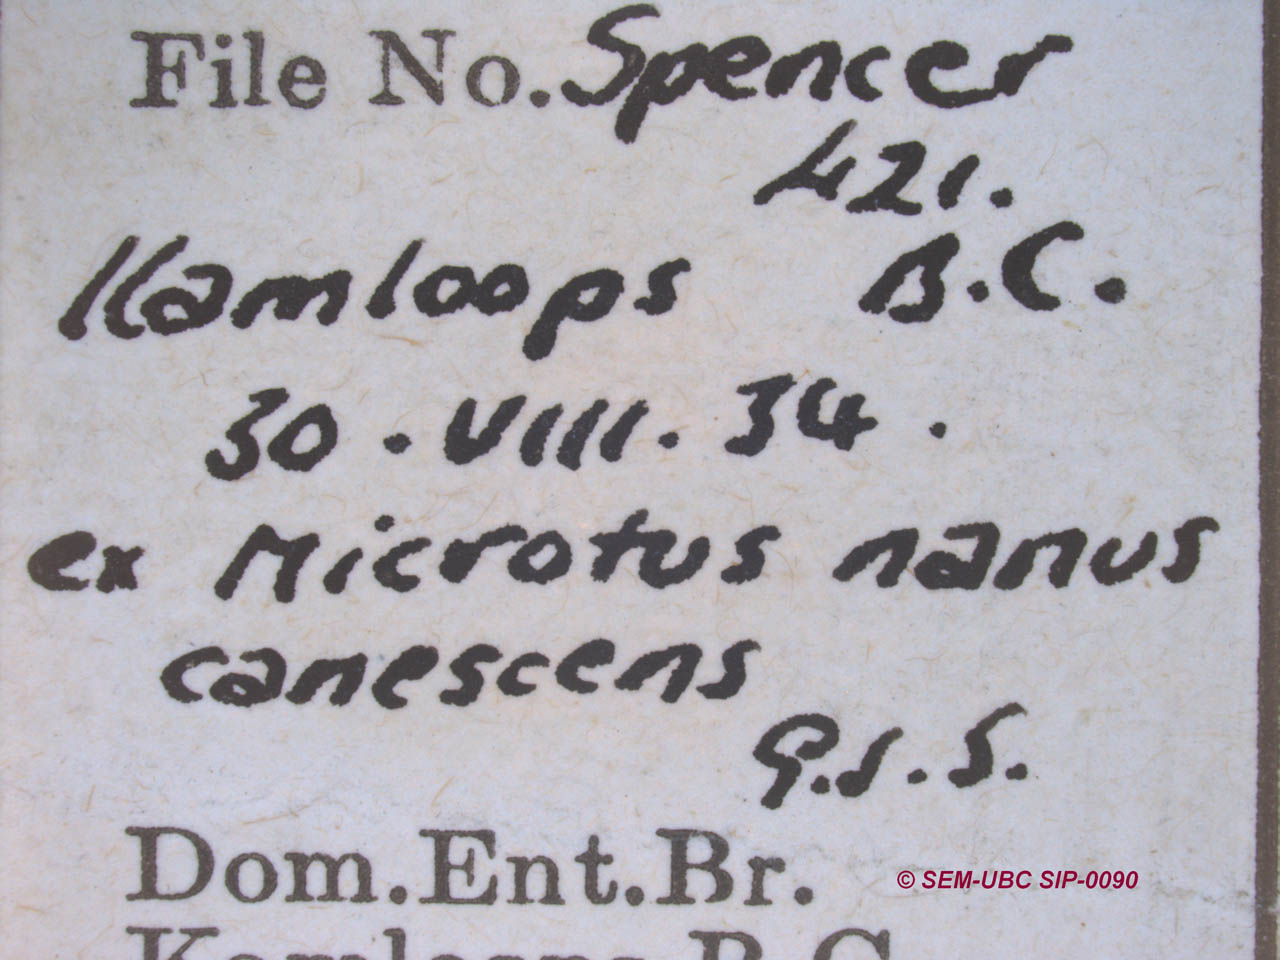 File No. Spencer
421.
Kamloops B.C.
30.VIII.34.
ex Microtus nanus
canescens
G.J.S.
Dom.Ent.Br.
© SEM-UBC SIP-0090
Kamloops B.C.